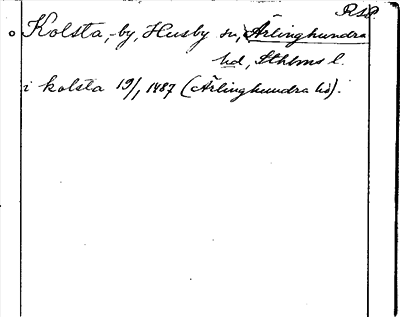 RSP
Kolsta, by, Husby sn, Ärlinghundra
hd, Sthlms l.
i kolsta 19/1 1487 (Ärlinghundra hd).